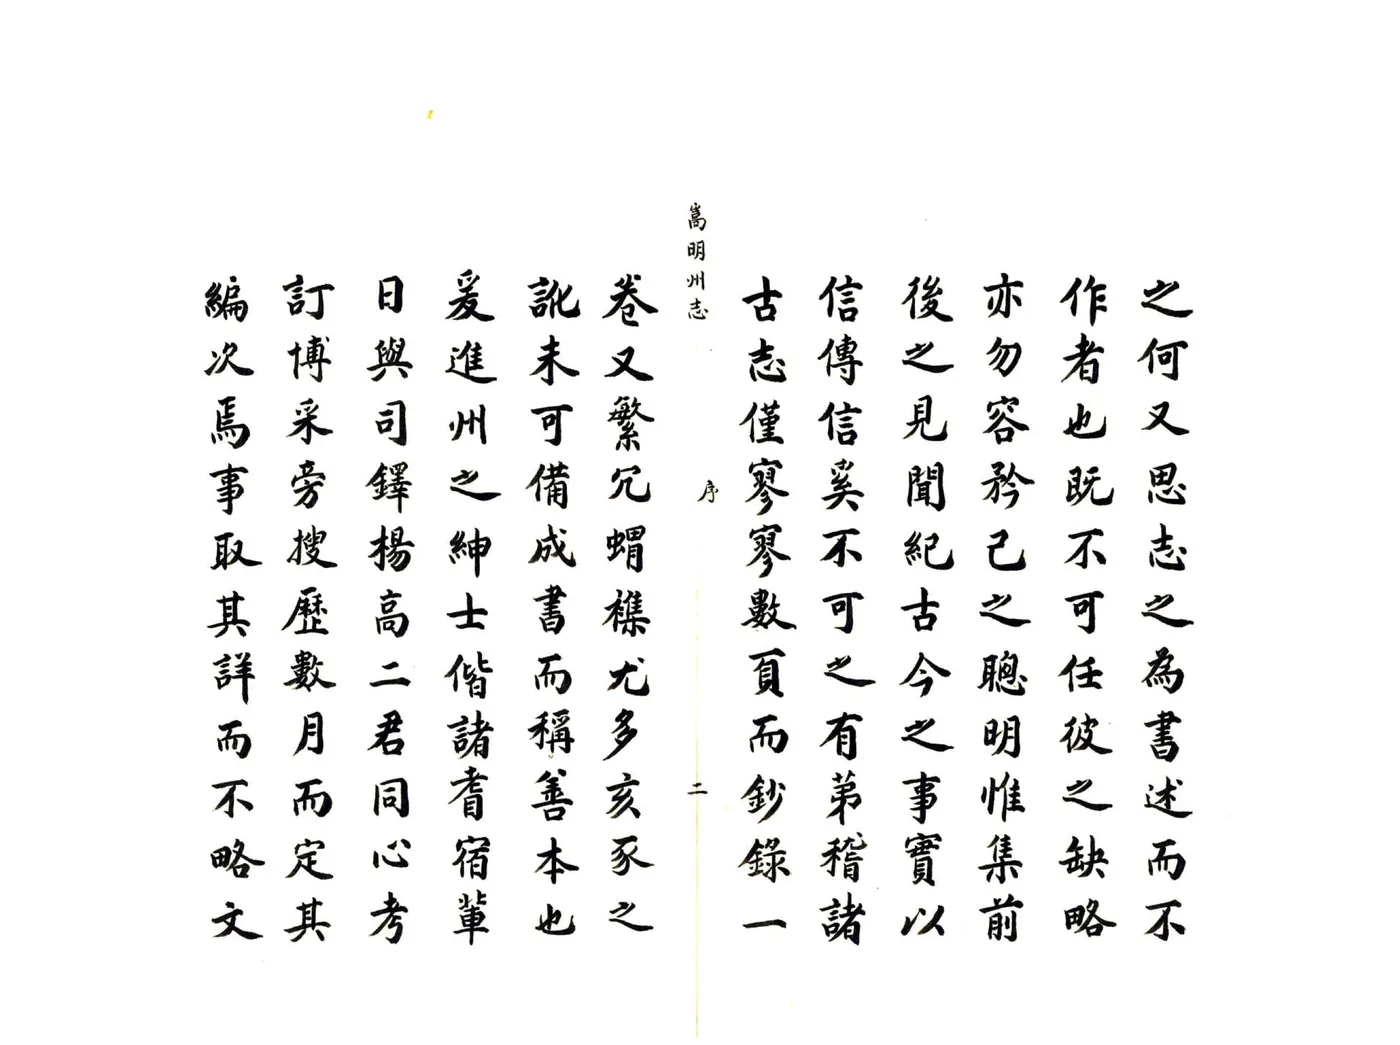 之何又思志之為書述而不
作者也既不可任彼之缺略
亦勿容矜己之聰明惟集前
後之見聞紀古今之事實以
信傳信奚不可之有第稽諸
古志僅寥寥數頁而鈔錄一
嵩明州志
序
二
卷又繁冗蝟襍尤多亥豕之
訛未可備成書而稱善本也
爰進州之紳士偕諸耆宿輩
日與司鐸楊高二君同心考
訂博采旁搜歷數月而定其
編次焉事取其詳而不略文